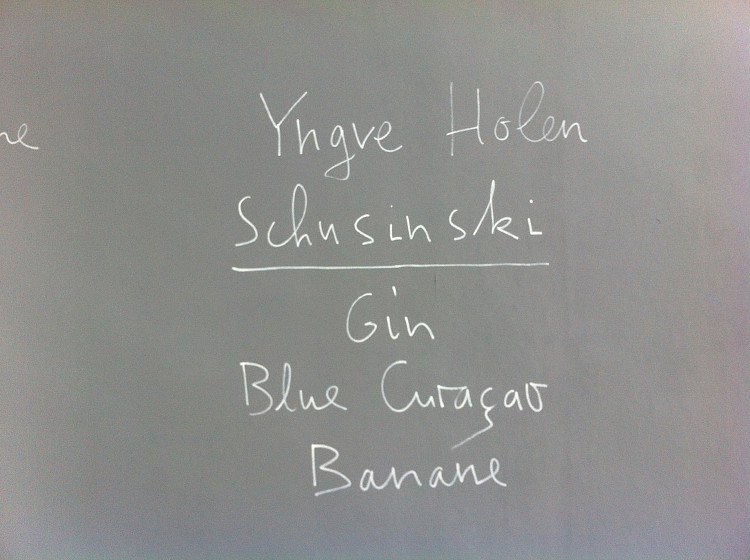 Yngve Holen
Schusinski
Gin
Blue Curaçao
Banane